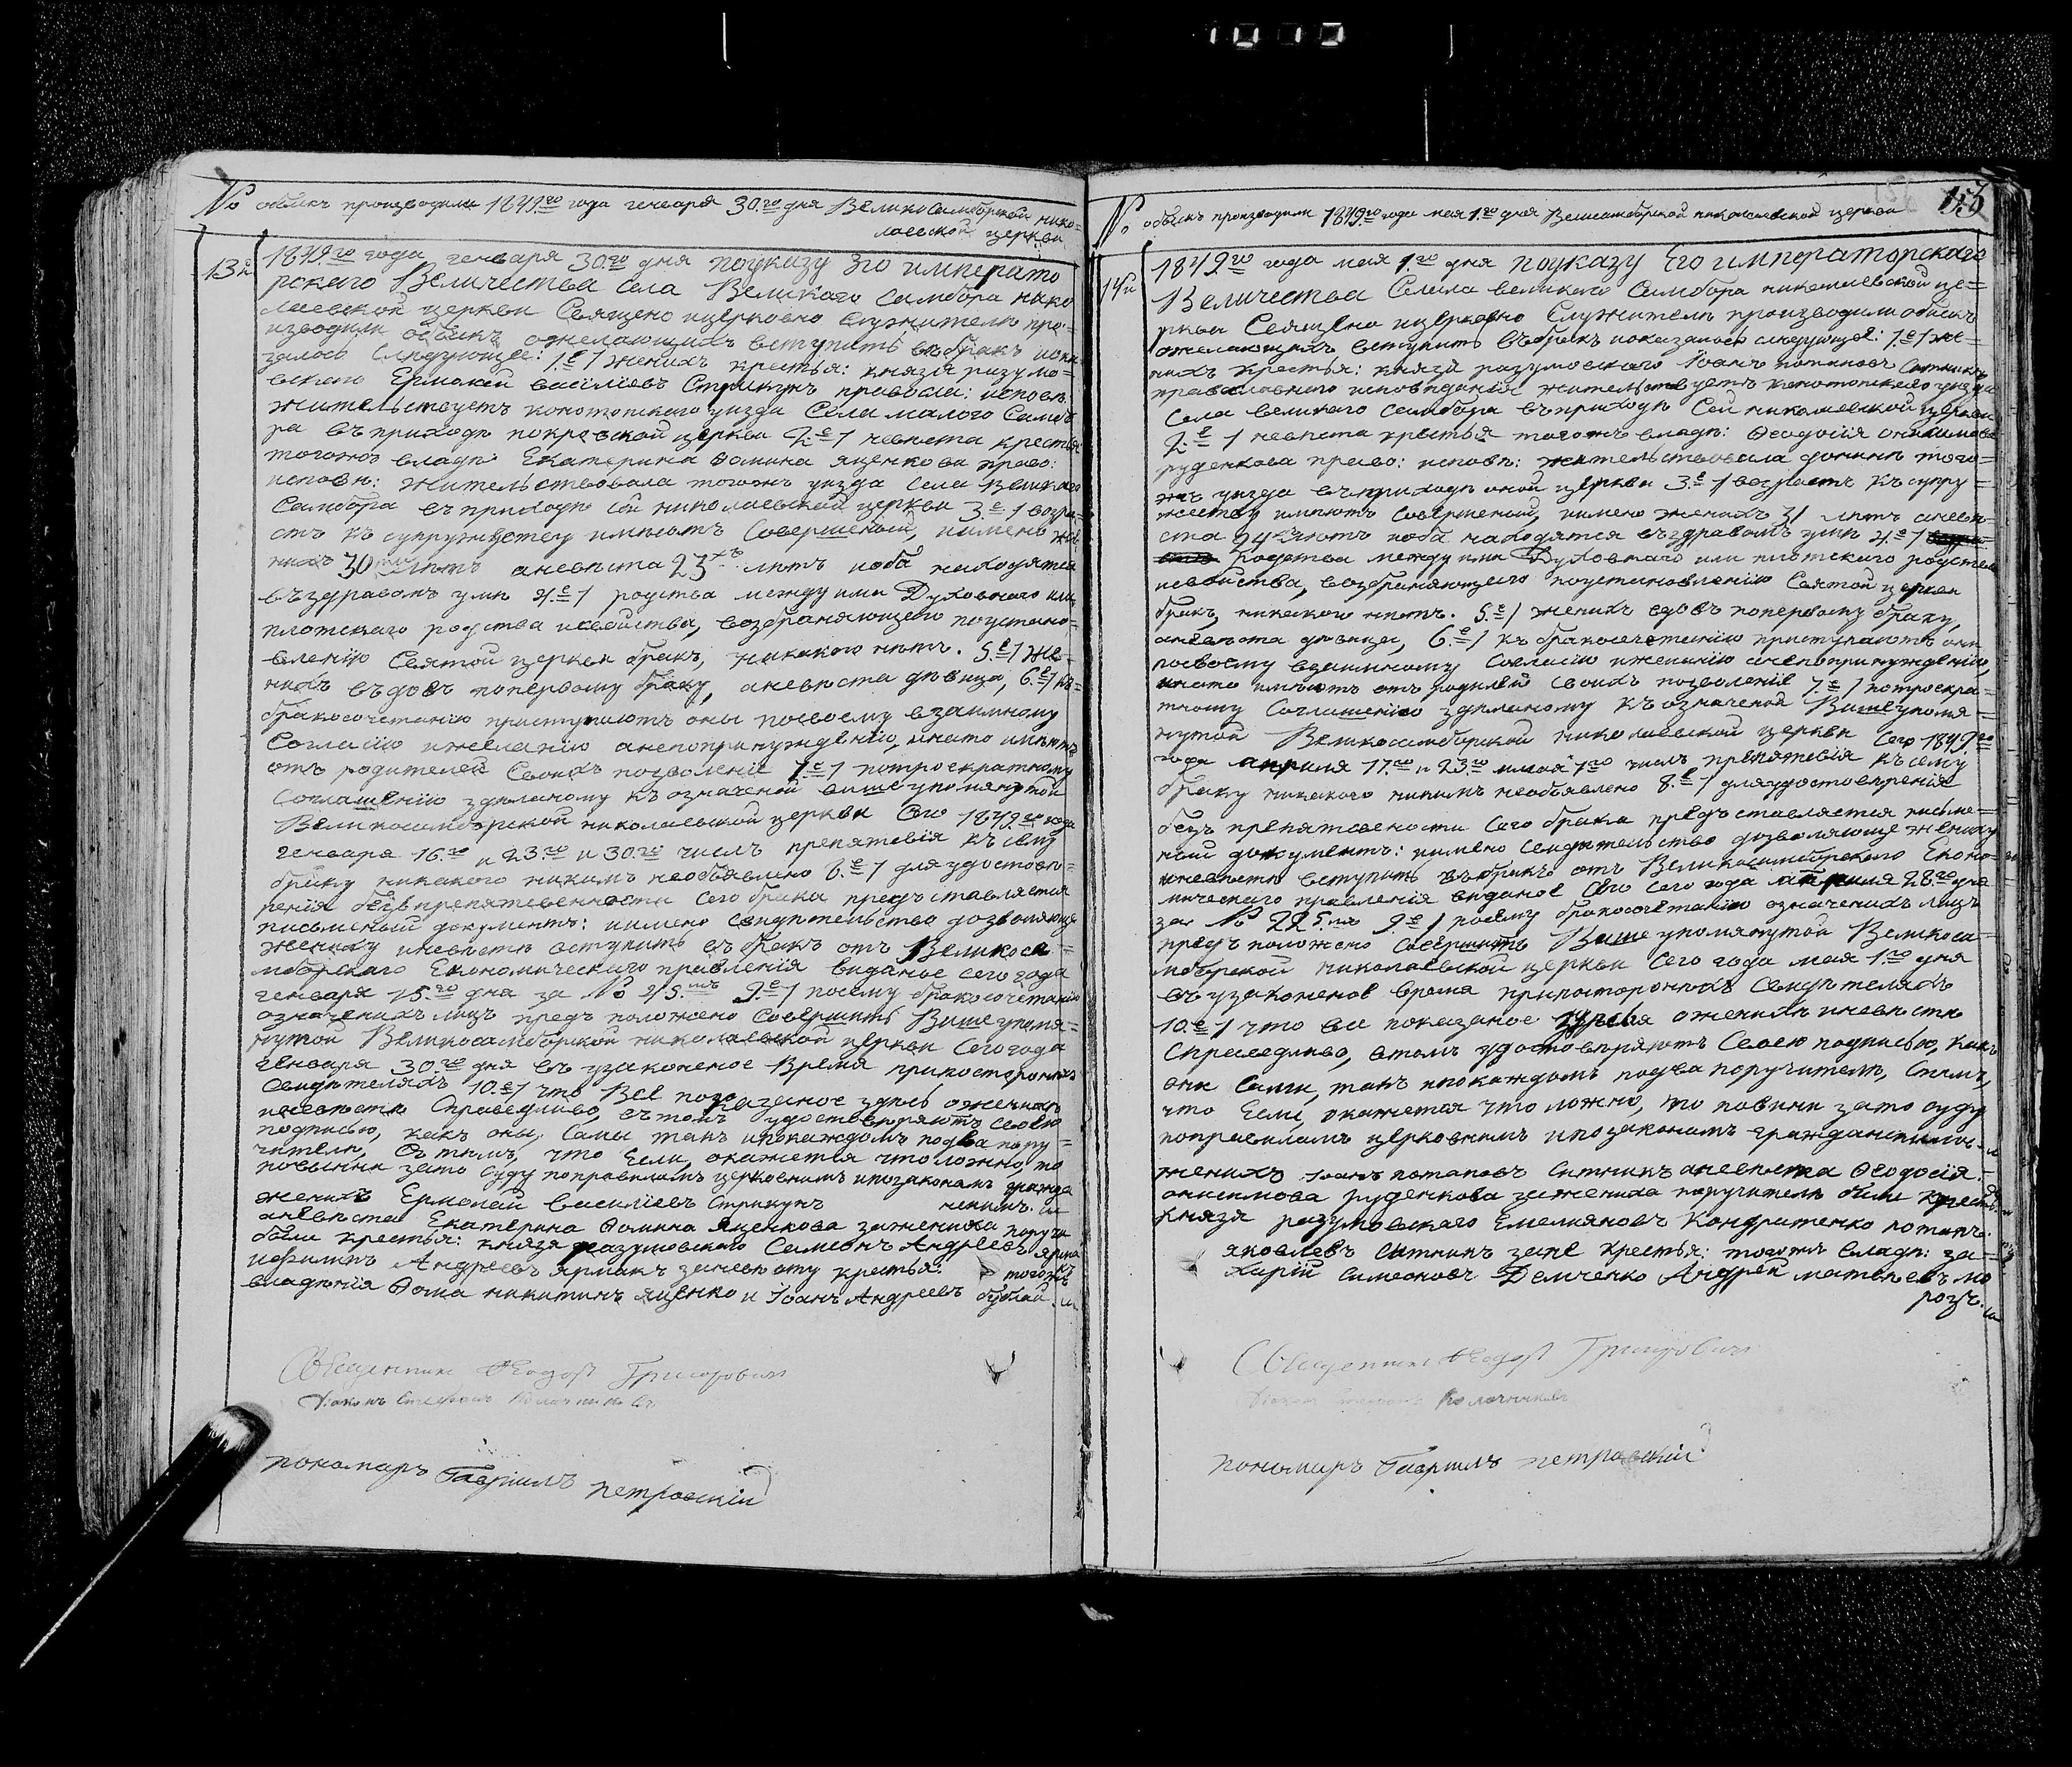 № обыскъ производили 1849го года генваря 30го дня Великосамборской нико=
лаевской церкви
13й
1849го года генваря 30го дня поуказу Эго императо
рского Величества села Великаго Самбора нико
лаевской церкви Священо ицерковно служители про=
изводили обыскъ ожелающихъ вступить въбракъ пока
залось следующее: 1.е/ женихъ крестья: князя разумо=
вского Ермолай василіевъ Стрикунъ правосла: исповѣ:
жительствуетъ конотопскаго уизда Села малого Самбо
ра въприходѣ покровской церкви 2.е/ невѣста крестья
тогожъ владѣ: Екатерина Фомина яценкова право:
исповѣ: жительствовала тогожъ уизда села Великаго
Самбора въприходѣ сей николаевской церкви 3.е/ возра
стъ къ супружеству имѣютъ Совершеный, иимено же
нихъ 30 лѣтъ аневѣста 23хъ лѣтъ иоба находятся
въздравомъ умѣ 4.е/ родства между ими Духовного или
плотскаго родства исвойства, возбраняющего поустано=
вленію Святой церкви бракъ, никакого нѣтъ. 5.е/ Же=
нихъ въдовъ попервому браку, аневѣста дѣвица, 6.е/ къ=
бракосочетанію приступаютъ оны посвоему взаимному
Согласію ижеланію анепопринужденію, инато имѣютъ
отъ родителей Своихъ позволеніе 7.е/ потроекратному
соглашенію здѣланому къ означеной вишеупомянутой
Великосамборской николаевской церкви Сего 1849го года
генваря 16.го и 23.го и 30.го числъ препятсвія къ сему
браку никакого никимъ необъявлено 8.е/ для удостовѣ=
ренія безъпрепятственности Сего брака предъставляется
письменый документъ: иимено свидѣтельство дозволяюще
жениху иневѣстѣ вступить въ бракъ отъ Великоса=
мборского Економическаго правленія виданое сего года
генваря 15.го дня за № 45.мъ 9.е/ посему бракосочетаніе
означенихъ лицъ предъположено Совершить Вишеупомя=
нутой Великосамборской николаевской церкви Сего года
генваря 30.го дня въ узаконеное Время припостороннихъ
Свидѣтеляхъ 10.е/ что Все показаное здѣсь оженихѣ
иневѣстѣ Справедливо, втомъ удостовѣряютъ своею
подписью, какъ оны, Сами такъ ипокаждомъ подва пору=
чителя, Стѣмъ, что Если, окажется чтоложно, то
повинни зато суду поправиламъ церковнимъ ипозаконамъ гражда
женихъ Ермолай василіевъ Стрикунъ нскимъ.
аневѣста Екатерина Фомина яценкова зажениха поручи
были крестья: князя разумовского Семеонъ Андреевъ ярма
иефимъ Андреевъ ярмакъ заневѣсту крестья: тогожъ
владѣнія Фома никитинъ яценко и Іоанъ Андреевъ бублей.
Священникъ Феодоръ Григоровичъ
Діаконъ Стефанъ
пономаръ Гавріилъ петровскій
№ обыскъ производили 1849го года мая 1.го дня Великосамборской николаевской церкви 153
14й
1849го года мая 1.го дня поуказу Его императорскаго
Величества Села великого Самбора николаевской це=
ркви Священо ицерковно Служители производили обыскъ
ожелающихъ вступить въбракъ показалось следующее: 1.е/ же=
нихъ крестья: князя разумоского Іоанъ потаповъ Ситникъ
православного исповиданія жительствуетъ конотопского уизда
Села великого самбора въприходѣ Сей николаевской церкви
2.е/ невѣста крестья тогожъ владѣ: Феодосія онисимова
руденкова право: исповѣ: жительствовала донинѣ того=
жъ уизда въприходѣ оной церкви 3.е/ возрастъ къ супру=
жеству имѣютъ Совершеный, иимено женихъ 31 лѣтъ аневѣ
ста 24 лѣтъ иоба находятся въздравомъ умѣ 4.е/
родства между ими Духовнаго или плотскаго родства
исвойства, возбраняющего поустановленію Святой церкви
бракъ, никакого нѣтъ. 5.е/ женихъ вдовъ попервому браку,
аневѣста дѣвица, 6.е/ къ бракосочетанію приступаютъ они
посвоему взаимному Согласію ижеланію анепопринужденію,
инато имѣютъ отъ родилей своихъ позволеніе 7.е/ потроекра=
тному Соглашенію здѣланому къ означеной Вишеупомя=
нутой Великосамборской николаевской церкви Сего 1849го
года априля 17.го и 23.го имая 1го числъ препятсвія къ сему
браку никакого никимъ необъявлено 8.е/ дляудостовѣренія
безъ препятсвености Сего брака предъставляется писме=
ный документъ: иимено свидѣтельство дозволяюще жениху
иневѣстѣ вступить въбракъ отъ Великосамборского Еконо=
мическаго правленія виданое Сего года априля 28.го дня
за № 225.мъ 9.е/ посему бракосочетаніе означенихъ лицъ
предъположено Совершить Вишеупомянутой Великоса=
мборской николаевской церкви Сего года мая 1.го дня
въузаконеное время припостороннихъ Свидѣтеляхъ
10.е/ что все показаное здѣсь оженихѣ иневѣстѣ
Справедливо, втомъ удостовѣряютъ Своею подписью, какъ
они Сами, такъ ипокаждомъ подва поручителя, Стѣмъ,
что Если, окажется что ложно, то повини зато суду
поправиламъ церковнимъ ипозаконамъ гражданскимъ.
женихъ Іоанъ потаповъ Ситникъ аневѣста Феодосія
онисимова руденкова зажениха поручители били крестья
князя разумовскаго Емелиановъ Кондратенко потапъ
яковлевъ Ситникъ занѣ крестья: тогожъ владѣ: за=
харій Симеоновъ Демченко Андрей матвѣевъ мо
розъ.
Священникъ Феодоръ Григоровичъ
Діаконъ
пономаръ Гавріилъ петровскій